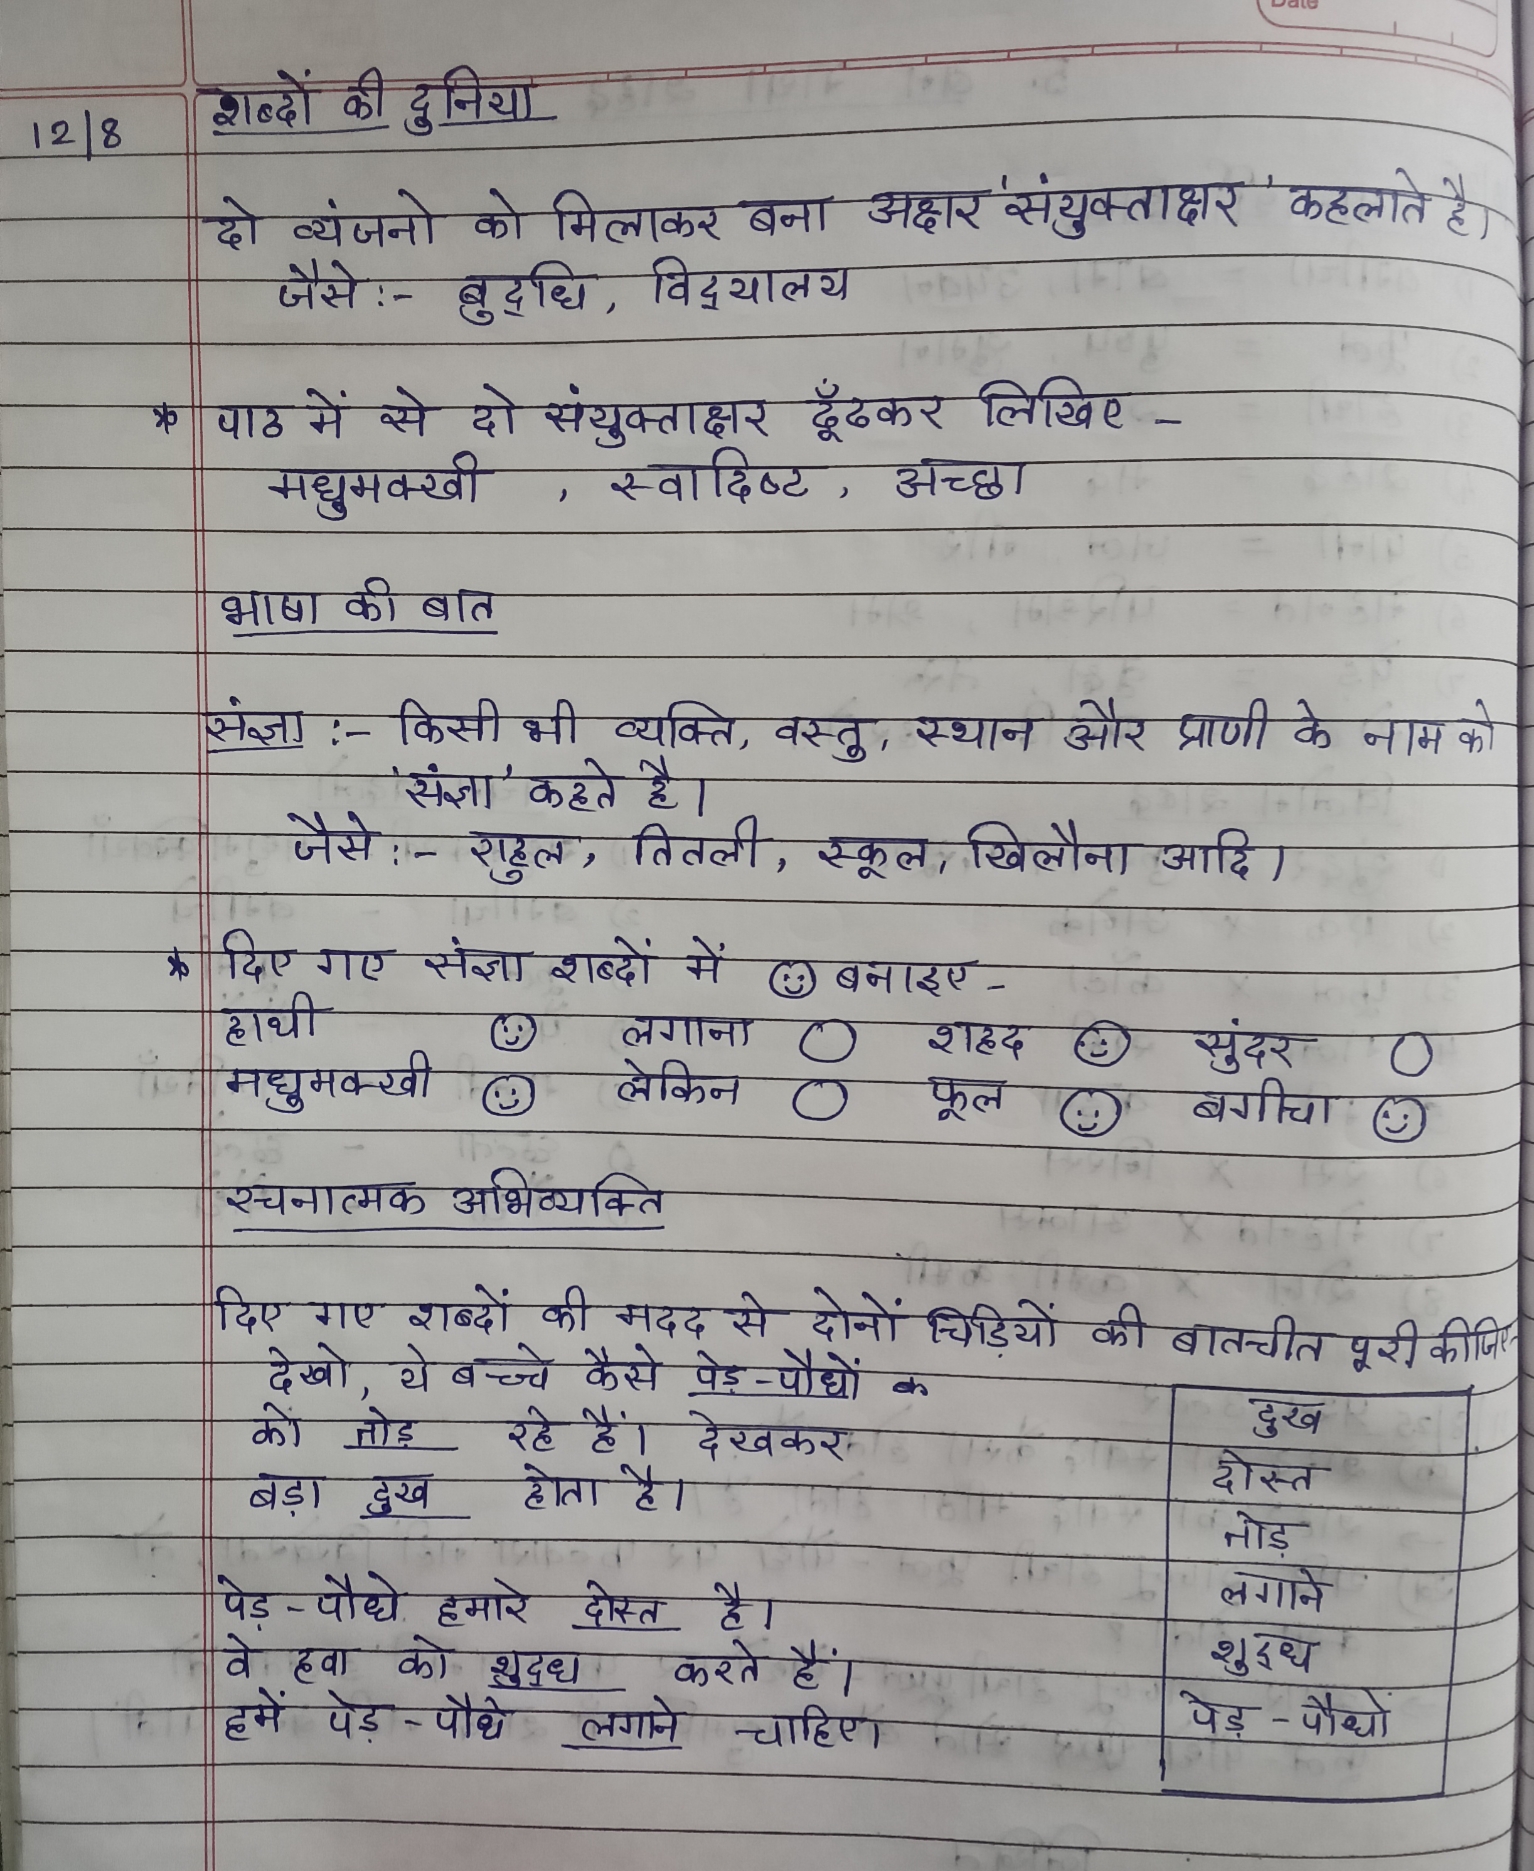 Date
12/8
शब्दों की दुनिया
दो व्यंजनो को मिलाकर बना अक्षर 'संयुक्ताक्षर' कहलाते है।
जैसे :- बुद्‌धि, विद्‌यालय
* पाठ में से दो संयुक्ताक्षर ढूँढकर लिखिए -
मधुमक्खी , स्वादिष्ट , अच्छा
भाषा की बात
संज्ञा :- किसी भी व्यक्ति, वस्तु, स्थान और प्राणी के नाम को
'संज्ञा' कहते है।
जैसे :- राहुल, तितली, स्कूल, खिलौना आदि।
* दिए गए संज्ञा शब्दों में ☺ बनाइए -
हाथी ☺ लगाना ○ शहद ☺ सुंदर ○
मधुमक्खी ☺ लेकिन ○ फूल ☺ बगीचा ☺
रचनात्मक अभिव्यक्ति
दिए गए शब्दों की मदद से दोनों चिड़ियों की बातचीत पूरी कीजिए
देखो, ये बच्चे कैसे पेड़-पौधों क
को तोड़ रहे हैं। देखकर
बड़ा दुख होता है।
पेड़-पौधे हमारे दोस्त है।
वे हवा को शुद्‌ध करते हैं।
हमें पेड़-पौधे लगाने चाहिए।
दुख
दोस्त
तोड़
लगाने
शुद्‌ध
पेड़ - पौधों